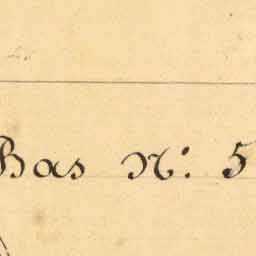 Bas N: 5